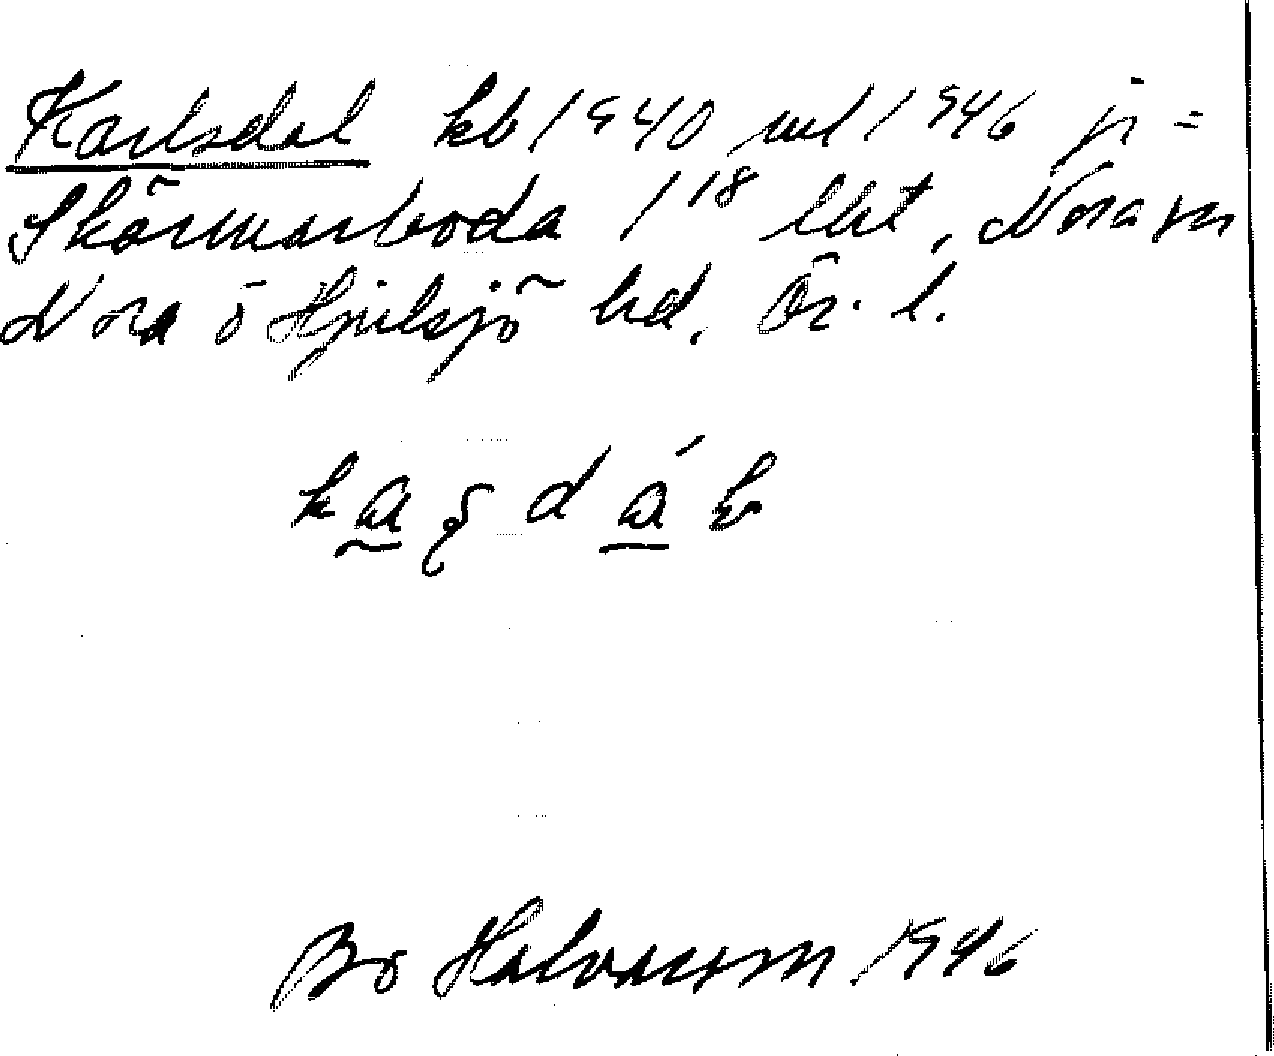 Karlsdal kb 1940 ml 1946 ji =
Skärmarboda 1¹⁸ lht, Nora sn
Nora o Hjulsjö hd. Ör. l.
k a d á
Bo Halvarsson 1946